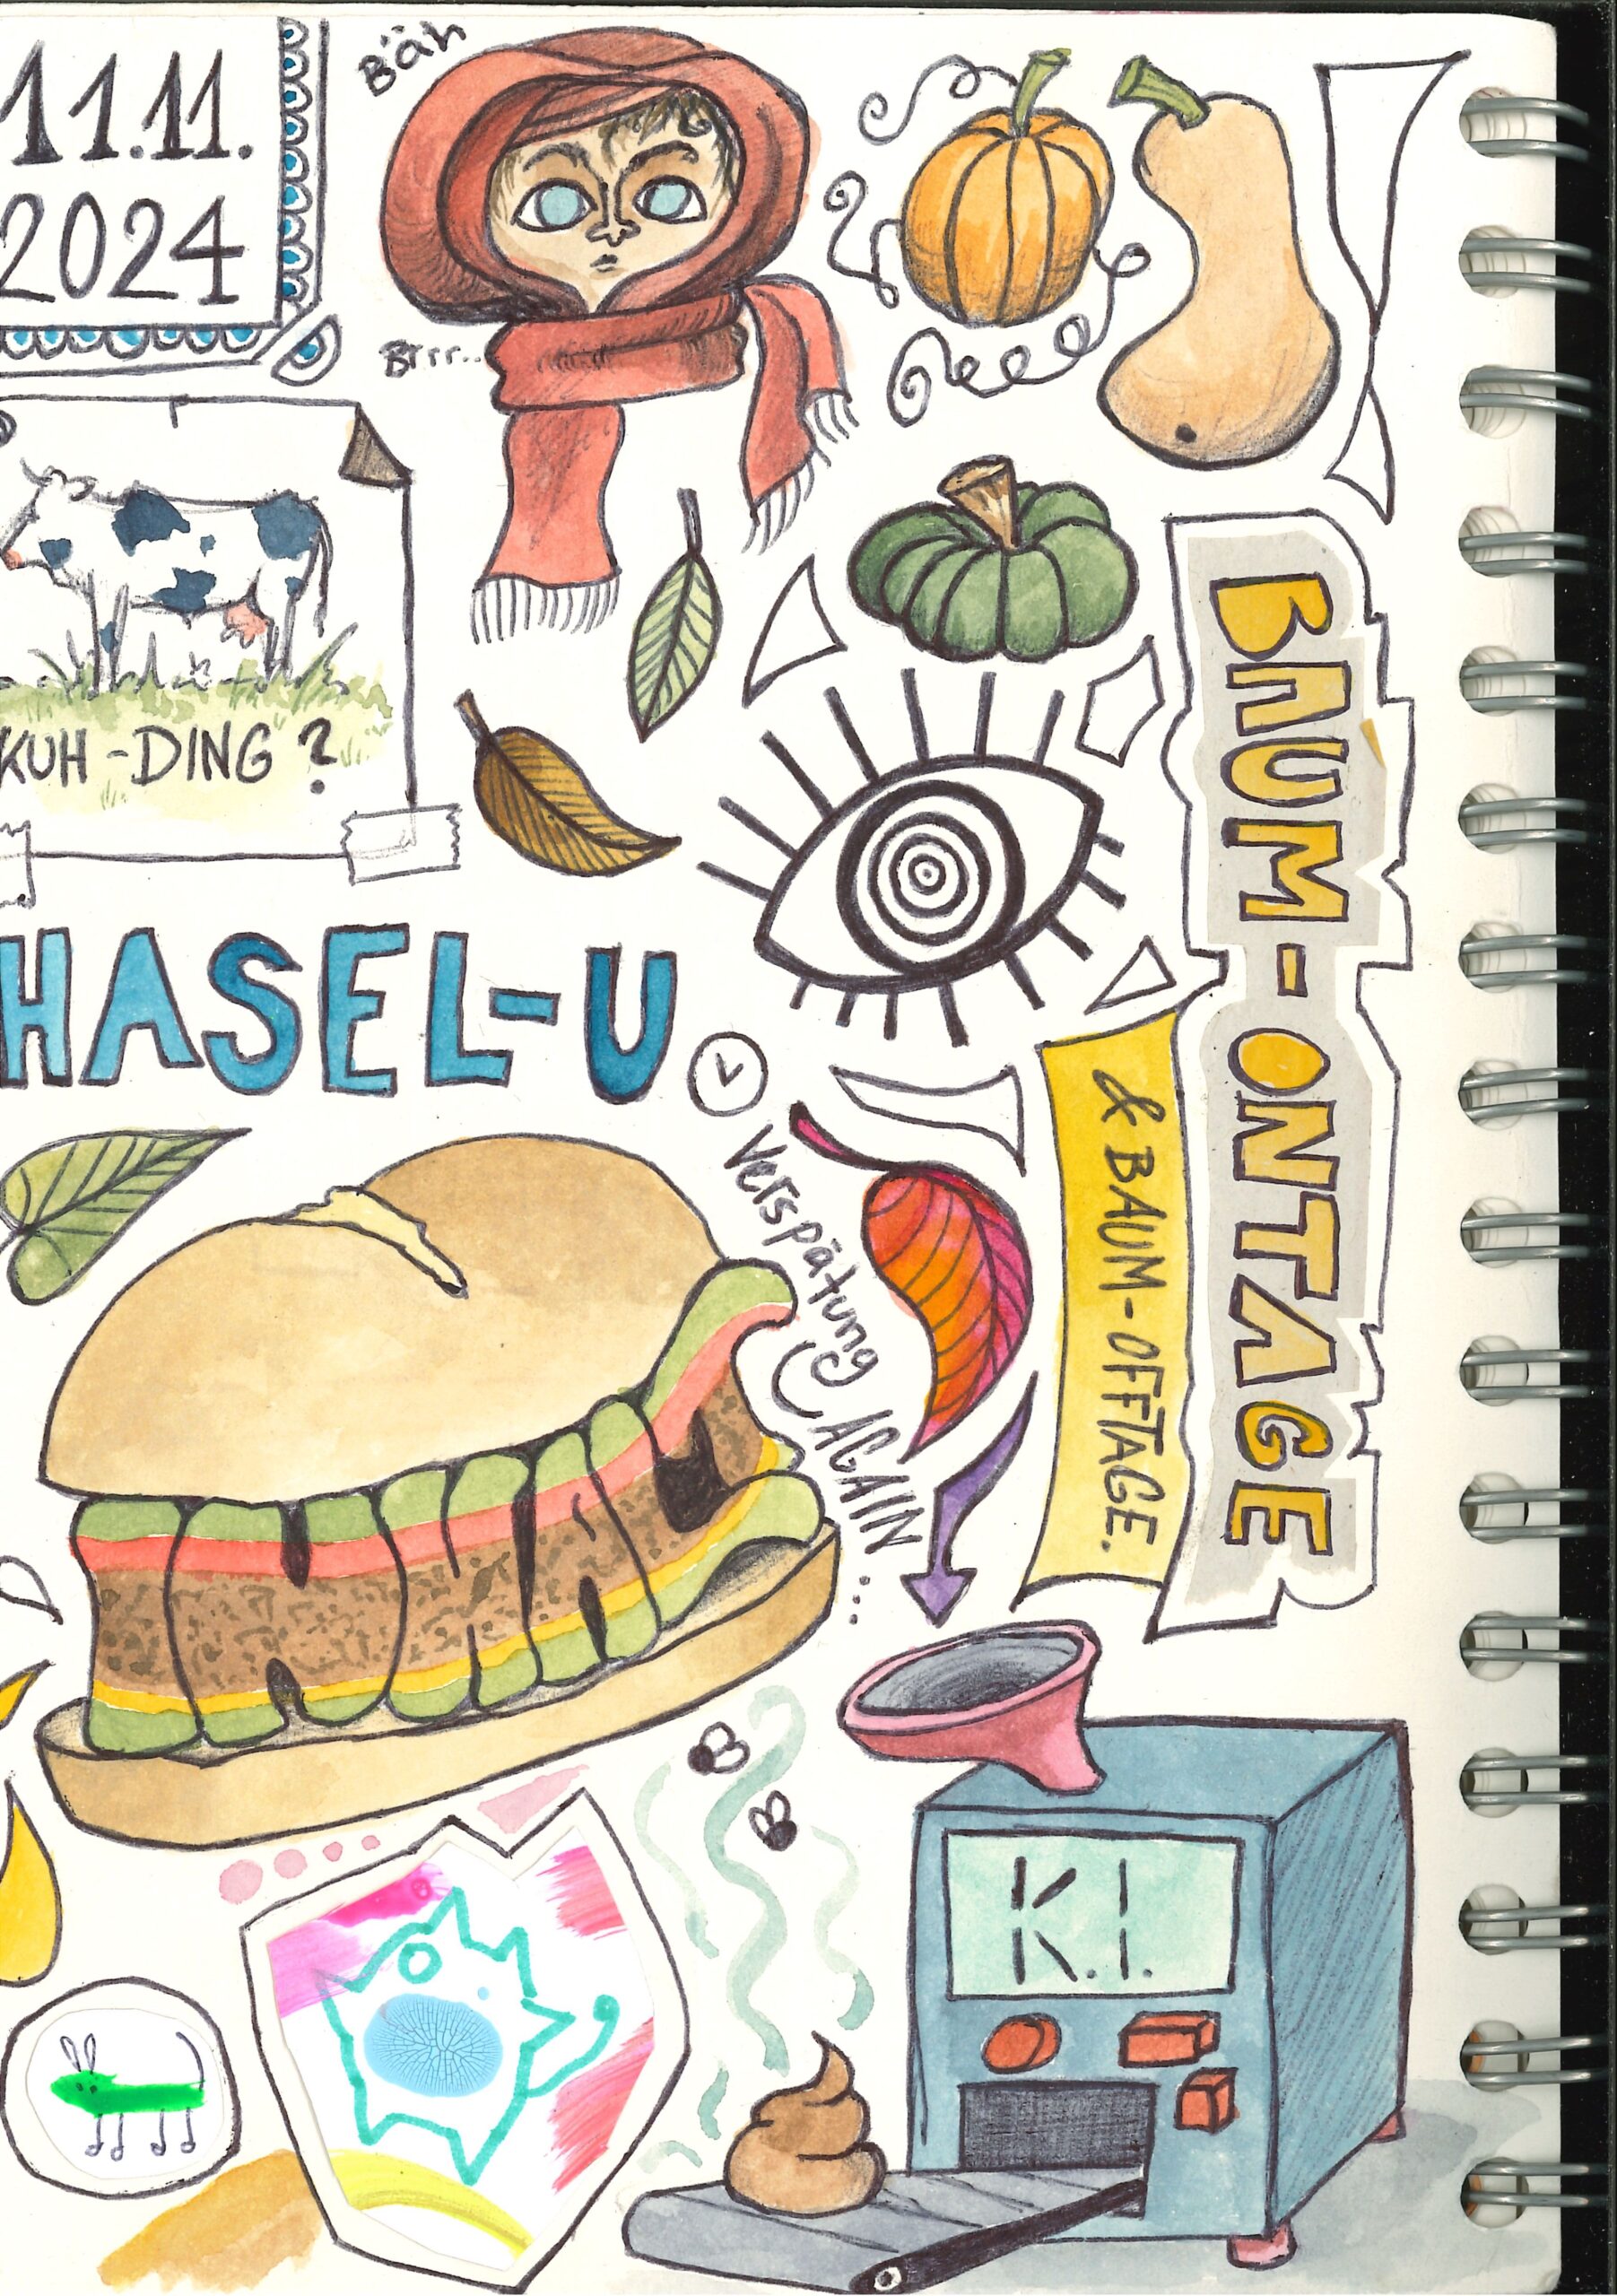 11.11.
2024
Bäh
Brrr..
KUH-DING?
HASEL-U
BAUM-ONTAGE
& BAUM-OFFTAGE.
Verspätung
AGAIN
...
K.I.